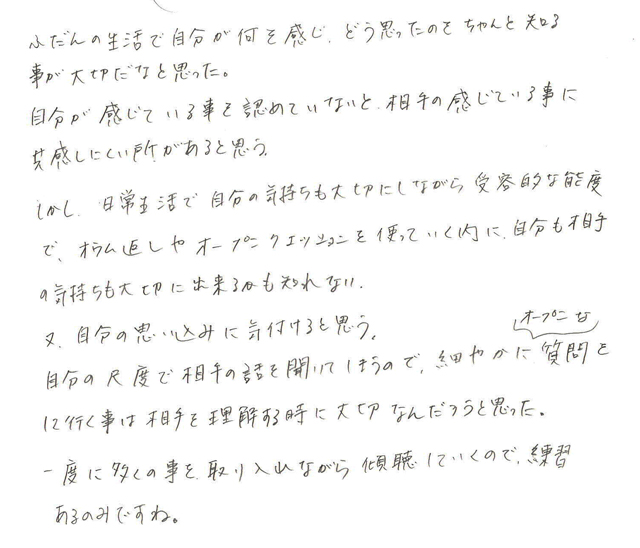 ふだんの生活で自分が何を感じ、どう思ったのをちゃんと知る
事が大切だなと思った。
自分が感じている事を認めていないと、相手の感じている事に
共感しにくい所があると思う。
しかし、日常生活で自分の気持ちも大切にしながら受容的な態度
で、オウム返しやオープンクエッションを使っていく内に、自分も相手
の気持ちも大切に出来るかも知れない。
又、自分の思い込みに気付けると思う。
オープンな
自分の尺度で相手の話を聞いてしまうので、細やかに質問を
しに行く事は相手を理解する時に大切なんだろうと思った。
一度に多くの事を取り入れながら傾聴していくので、練習
あるのみですね。